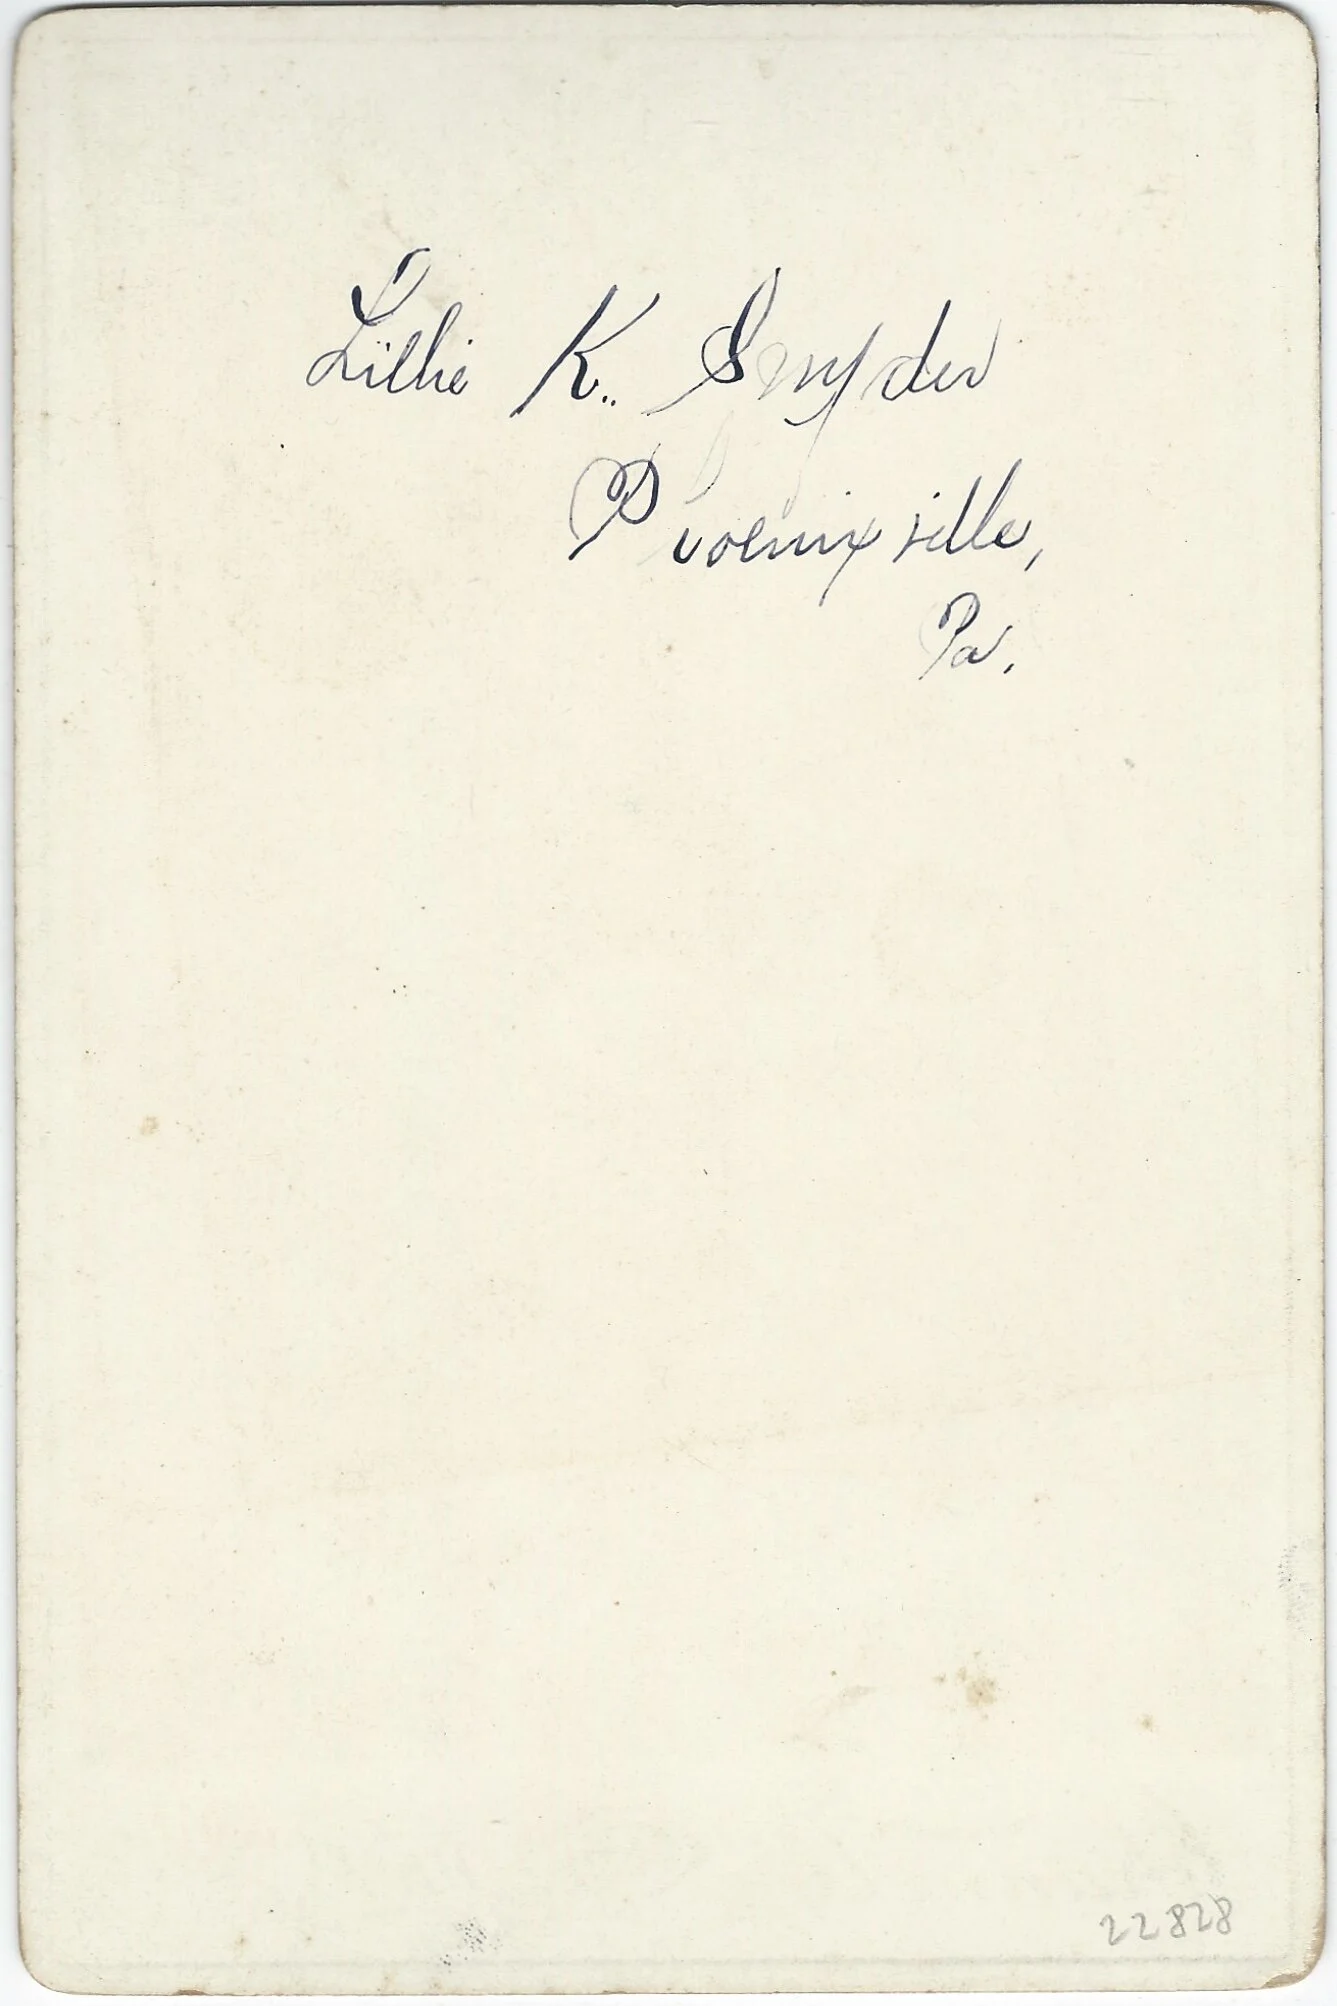 Lillie K. Snyder
Phoenixville,
Pa.
22828